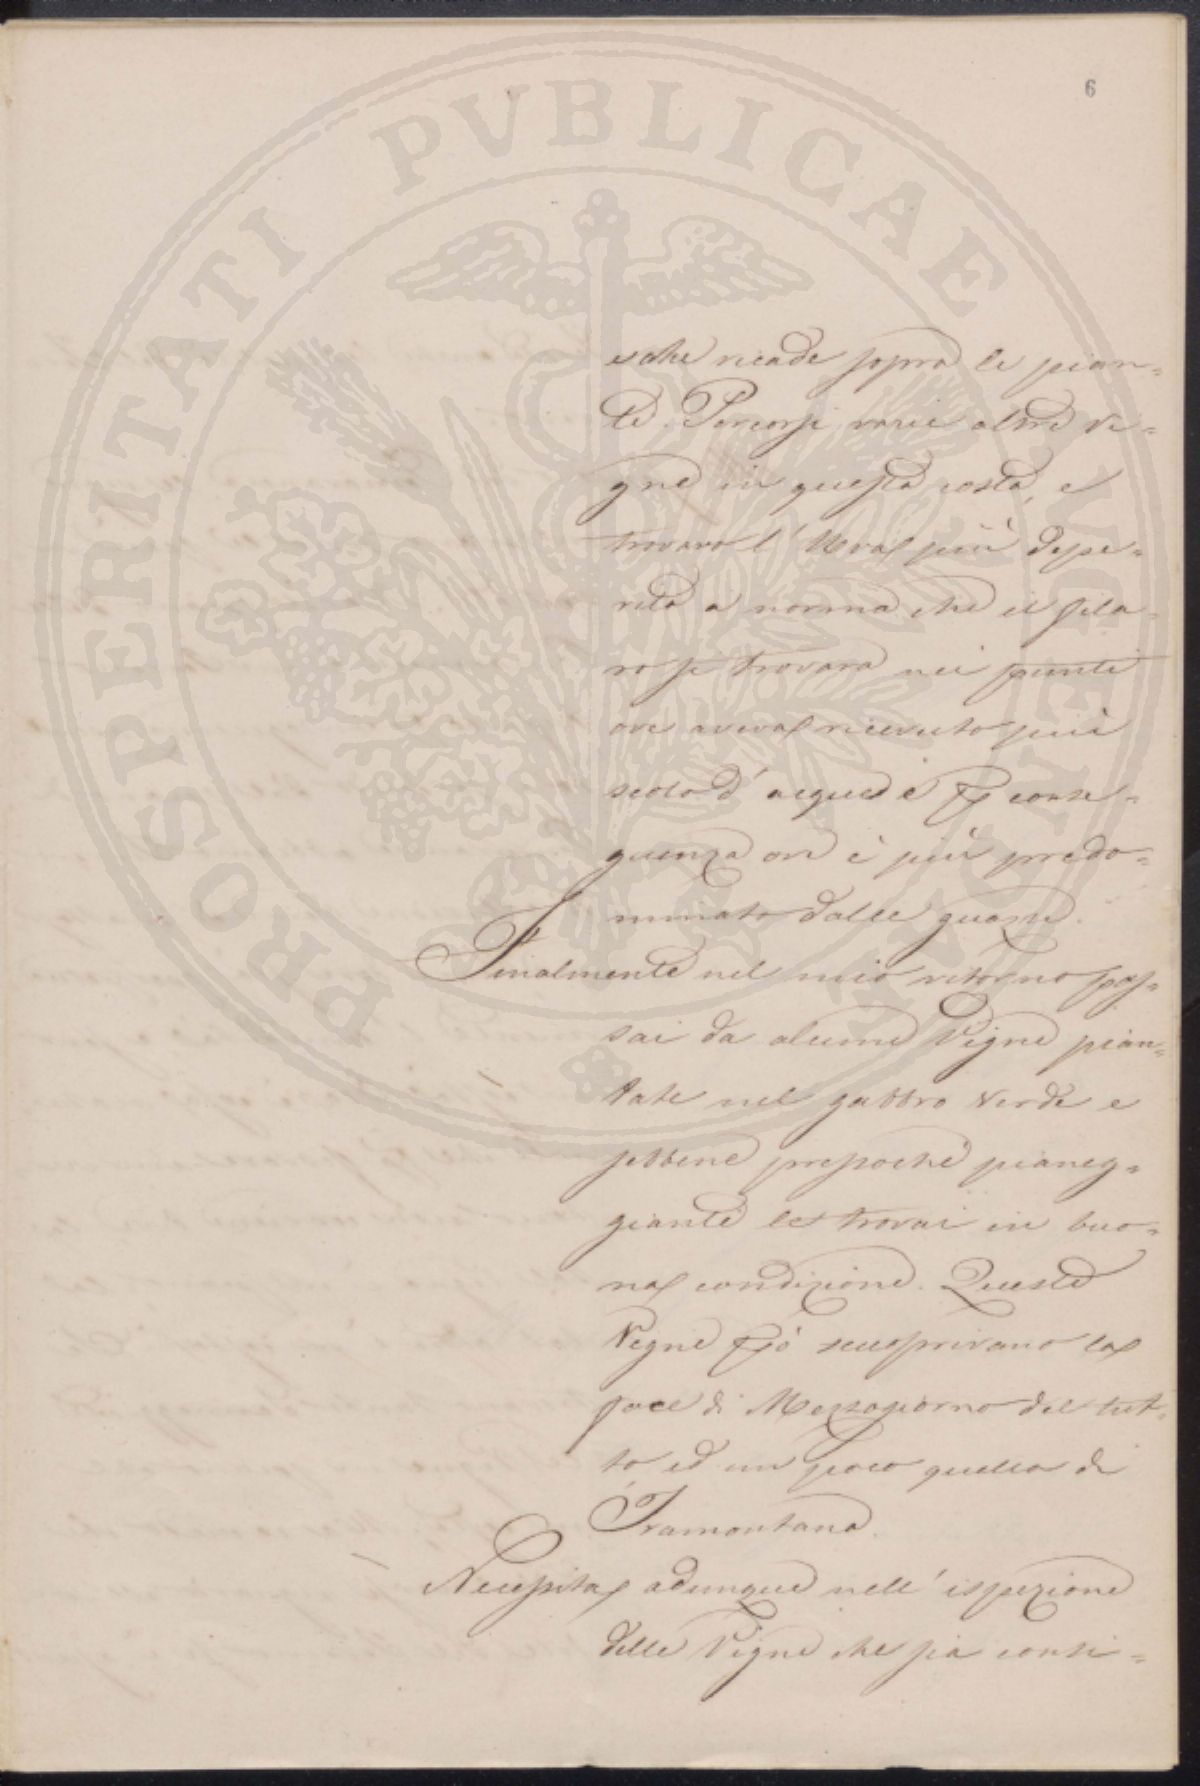 PROSPERITATI PVBLICAE AVGENDAE
6
e che ricade sopra le pian=
te. Percorsi varie altre Vi=
gne in questa costa, e
trovavo l'Uva più depe=
rita a norma che il fila=
ro si trovava nei punti
ove aveva ricevuto più
scolo d'acque e p conse=
guenza ove è più predo=
minato dalle guazze.
Finalmente nel mio ritorno pas=
sai da alcune Vigne pian=
tate nel gabbro verde e
sebbene pressoché pianeg=
gianti le trovai in buo=
na condizione. Queste
Vigne pò scuoprivano la
foce di Mezzogiorno del tut=
to ed un poco quella di
Tramontana.
Necessita adunque nell'ispezione
delle Vigne che sia consi=